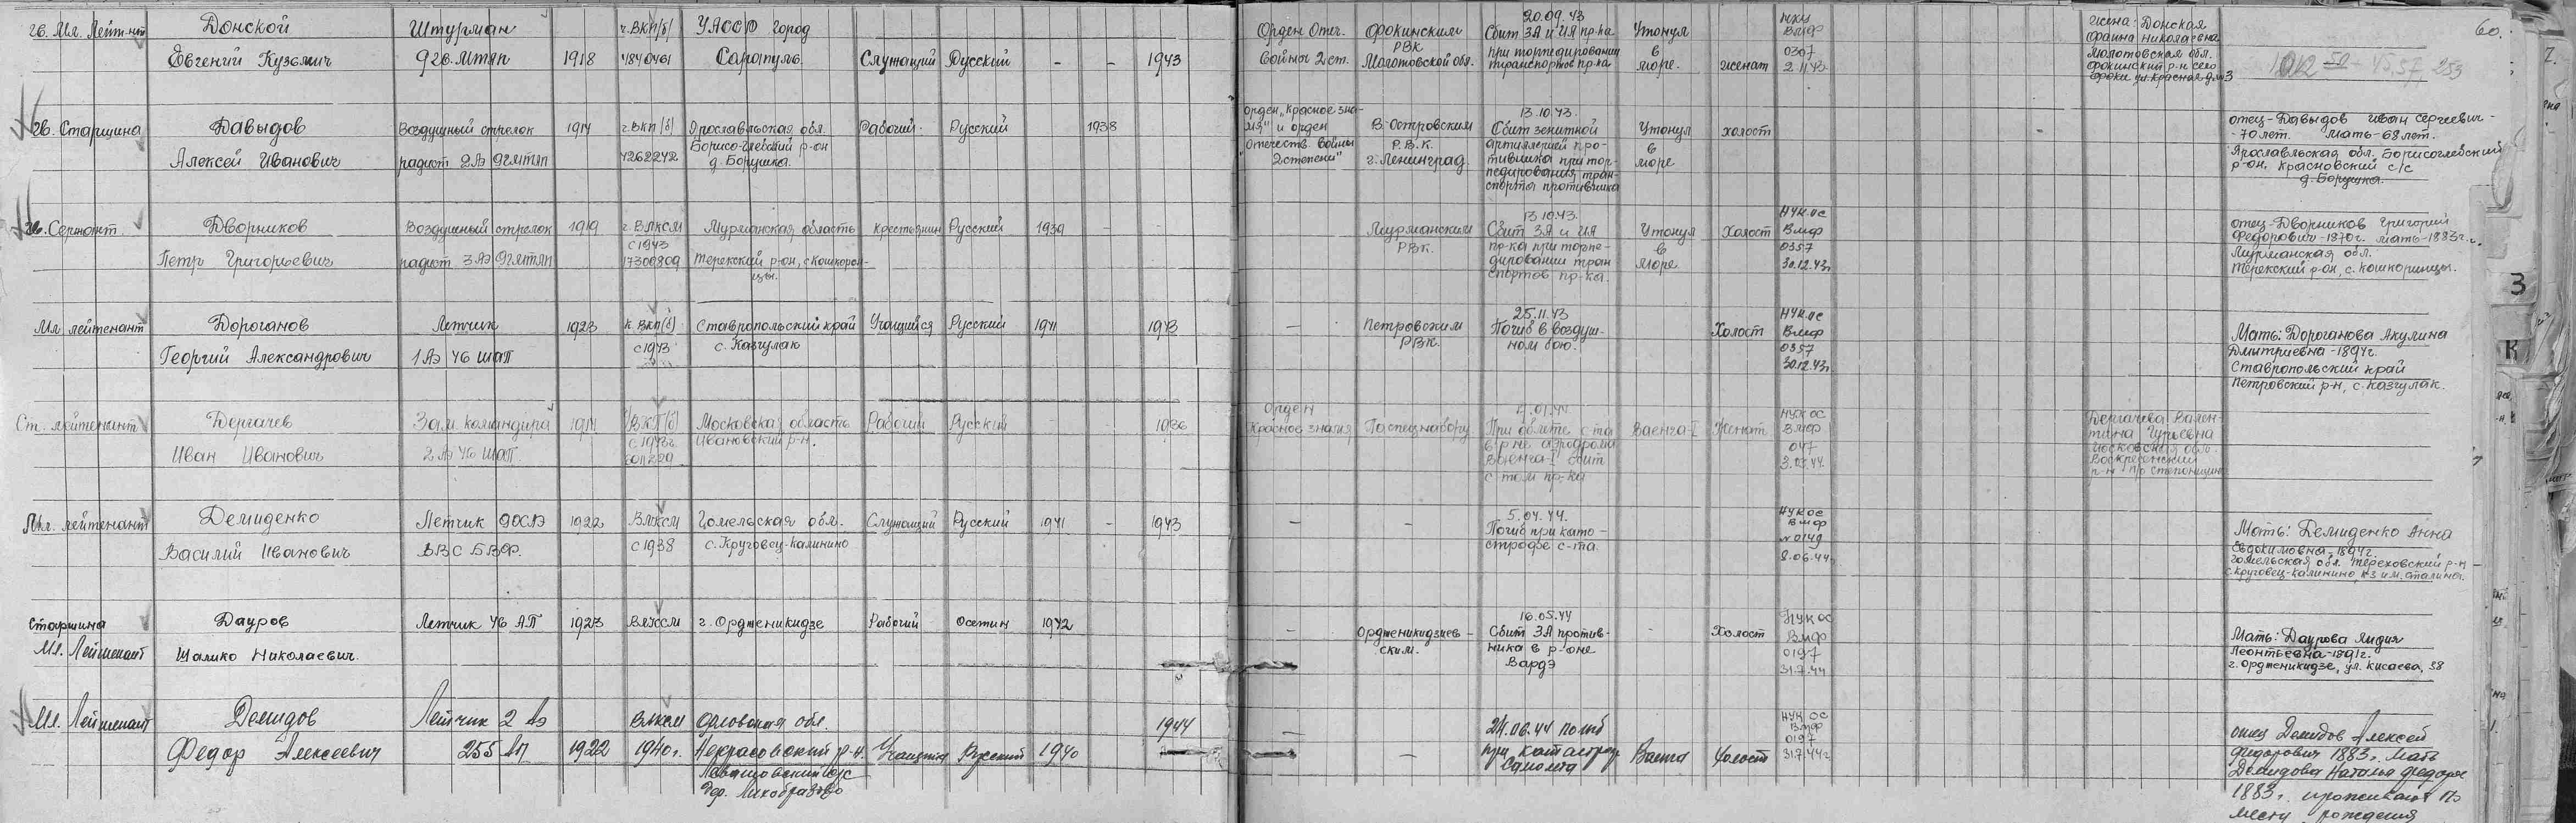 гв. Мл. Лейт-нт Донской Штурман ч.ВКП(б) УАССР город Орден Отеч. Фокинским 20.09.43 Утонул НКУ жена: Донская 60.
Евгений Кузьмич 9 гв. мтап 1918 4840461 Сарапуль. Служащий Русский - - 1943 Войны 2 ст. РВК Сбит ЗА и ИА пр-ка в ВМФ Фаина Николаевна
Молотовской обл. при торпедировании море. женат 0307 Молотовская обл.
транспортов пр-ка 2.11.43 Фокинский р-н село
Фоки ул. Красная д.
гв. Старшина Давыдов Воздушный стрелок ч.ВКП(б) Ярославльская обл. Рабочий. Русский 1938 орден „Красное зна- В. Островским 13.10.43. Утонул холост отец-Давыдов Иван Сергеевич-
Алексей Иванович радист 2 Аэ 9гмтап 4262242 Борисо-Глебский р-он мя" и орден Р.В.К. Сбит зенитной в -70 лет. Мать-68 лет.
д. Борушка. Отечеств. Войны г. Ленинград. артиллерией про- море Ярославльская обл. Борисоглебский
2 степени" тивника при тор- р-он, Красновский с/с
педировании тран- д. Борушка.
спорта противника
гв. Сержант. Дворников Воздушный стрелок 1919 ч. ВЛКСМ Мурманская область крестьянин Русский 1939 - - - Мурманским 13.10.43. Утонул Холост НУК ОС отец-Дворников Григорий
Петр Григорьевич радист 3 Аэ 9гмтап с 1943 Терский р-он, с Кошкорон- РВК. Сбит ЗА и ИА в ВМФ Федорович-1870г. мать-1883г.
17306809 цы. пр-ка при торпе- море 0357 Мурманская обл.
дировании тран 30.12.43г Терекский р-он, с. Кошкоринцы.
спортов пр-ка.
Мл лейтенант Дороганов Летчик 1923 к ВКП(б) Ставропольский край Учащийся Русский 1941 1943 — Петровским 25.11.43 Холост НУК ОС Мать: Дороганова Акулина
Георгий Александрович 1 Аэ 46 шап с 1943 с. Казгулак РВК. Погиб в воздуш- ВМФ Дмитриевна-1894г.
ном бою. 0357 Ставропольский край
30.12.43г Петровский р-н, с. Казгулак.
Ст. лейтенант Дергачев Зам. командира ВКП(б) Московская область Рабочий Русский - - 1936 Орден По спецнабору При облете с-та Ваенга-I Женат НУК ОС Дергачева Вален-
Иван Иванович 2 Аэ 46 шап. с 1943г. Ивановский р-н. Красное знамя в р-не аэродрома ВМФ тина Гурьевна
Ваенга-I сбит 047 Московская обл.
с-том пр-ка 3.03.44. Воскресенский
Мл. лейтенант Демиденко Летчик 9 ОСАЭ 1922 ВЛКСМ Гомельская обл. Служащий Русский 1941 - 1943 — — 5.04.44. НУК ОС Мать: Демиденко Анна
Василий Иванович ВВС БВФ. с 1938 с. Круговец-Калинино Погиб при ката- ВМФ Евдокимовна-1894г.
строфе с-та. №0149 Гомельская обл. Тереховский р-н
8.06.44г с. Круговец-Калинино к-з им. Сталина.
Старшина Дауров Летчик 46 АП 1923 ВЛКСМ г. Орджоникидзе Рабочий Осетин 1942 — Орджоникидзев- 16.05.44 - Холост НУК ОС Мать: Даурова Лидия
Мл. Лейтенант Шалико Николаевич. ским. Сбит ЗА против- ВМФ Леонтьевна-1891г.
ника в р-оне 0197 г. Орджоникидзе, ул. Кисаева, 38
Вардэ 31.7.44
Мл. Лейтенант Демидов Летчик 2 Аэ ВЛКСМ Орловская обл. 1944 — 24.06.44 погиб НУК ОС отец Демидов Алексей
Федор Алексеевич 255 Ап 1922 1940г. Некрасовский р-н. Учащийся Русский 1940 — при катастрофе Ваенга Холост ВМФ Федорович 1883г. Мать
самолета 0197 Демидова Наталья Федоров
31.7.44г 1883г. проживают по
месту рождения